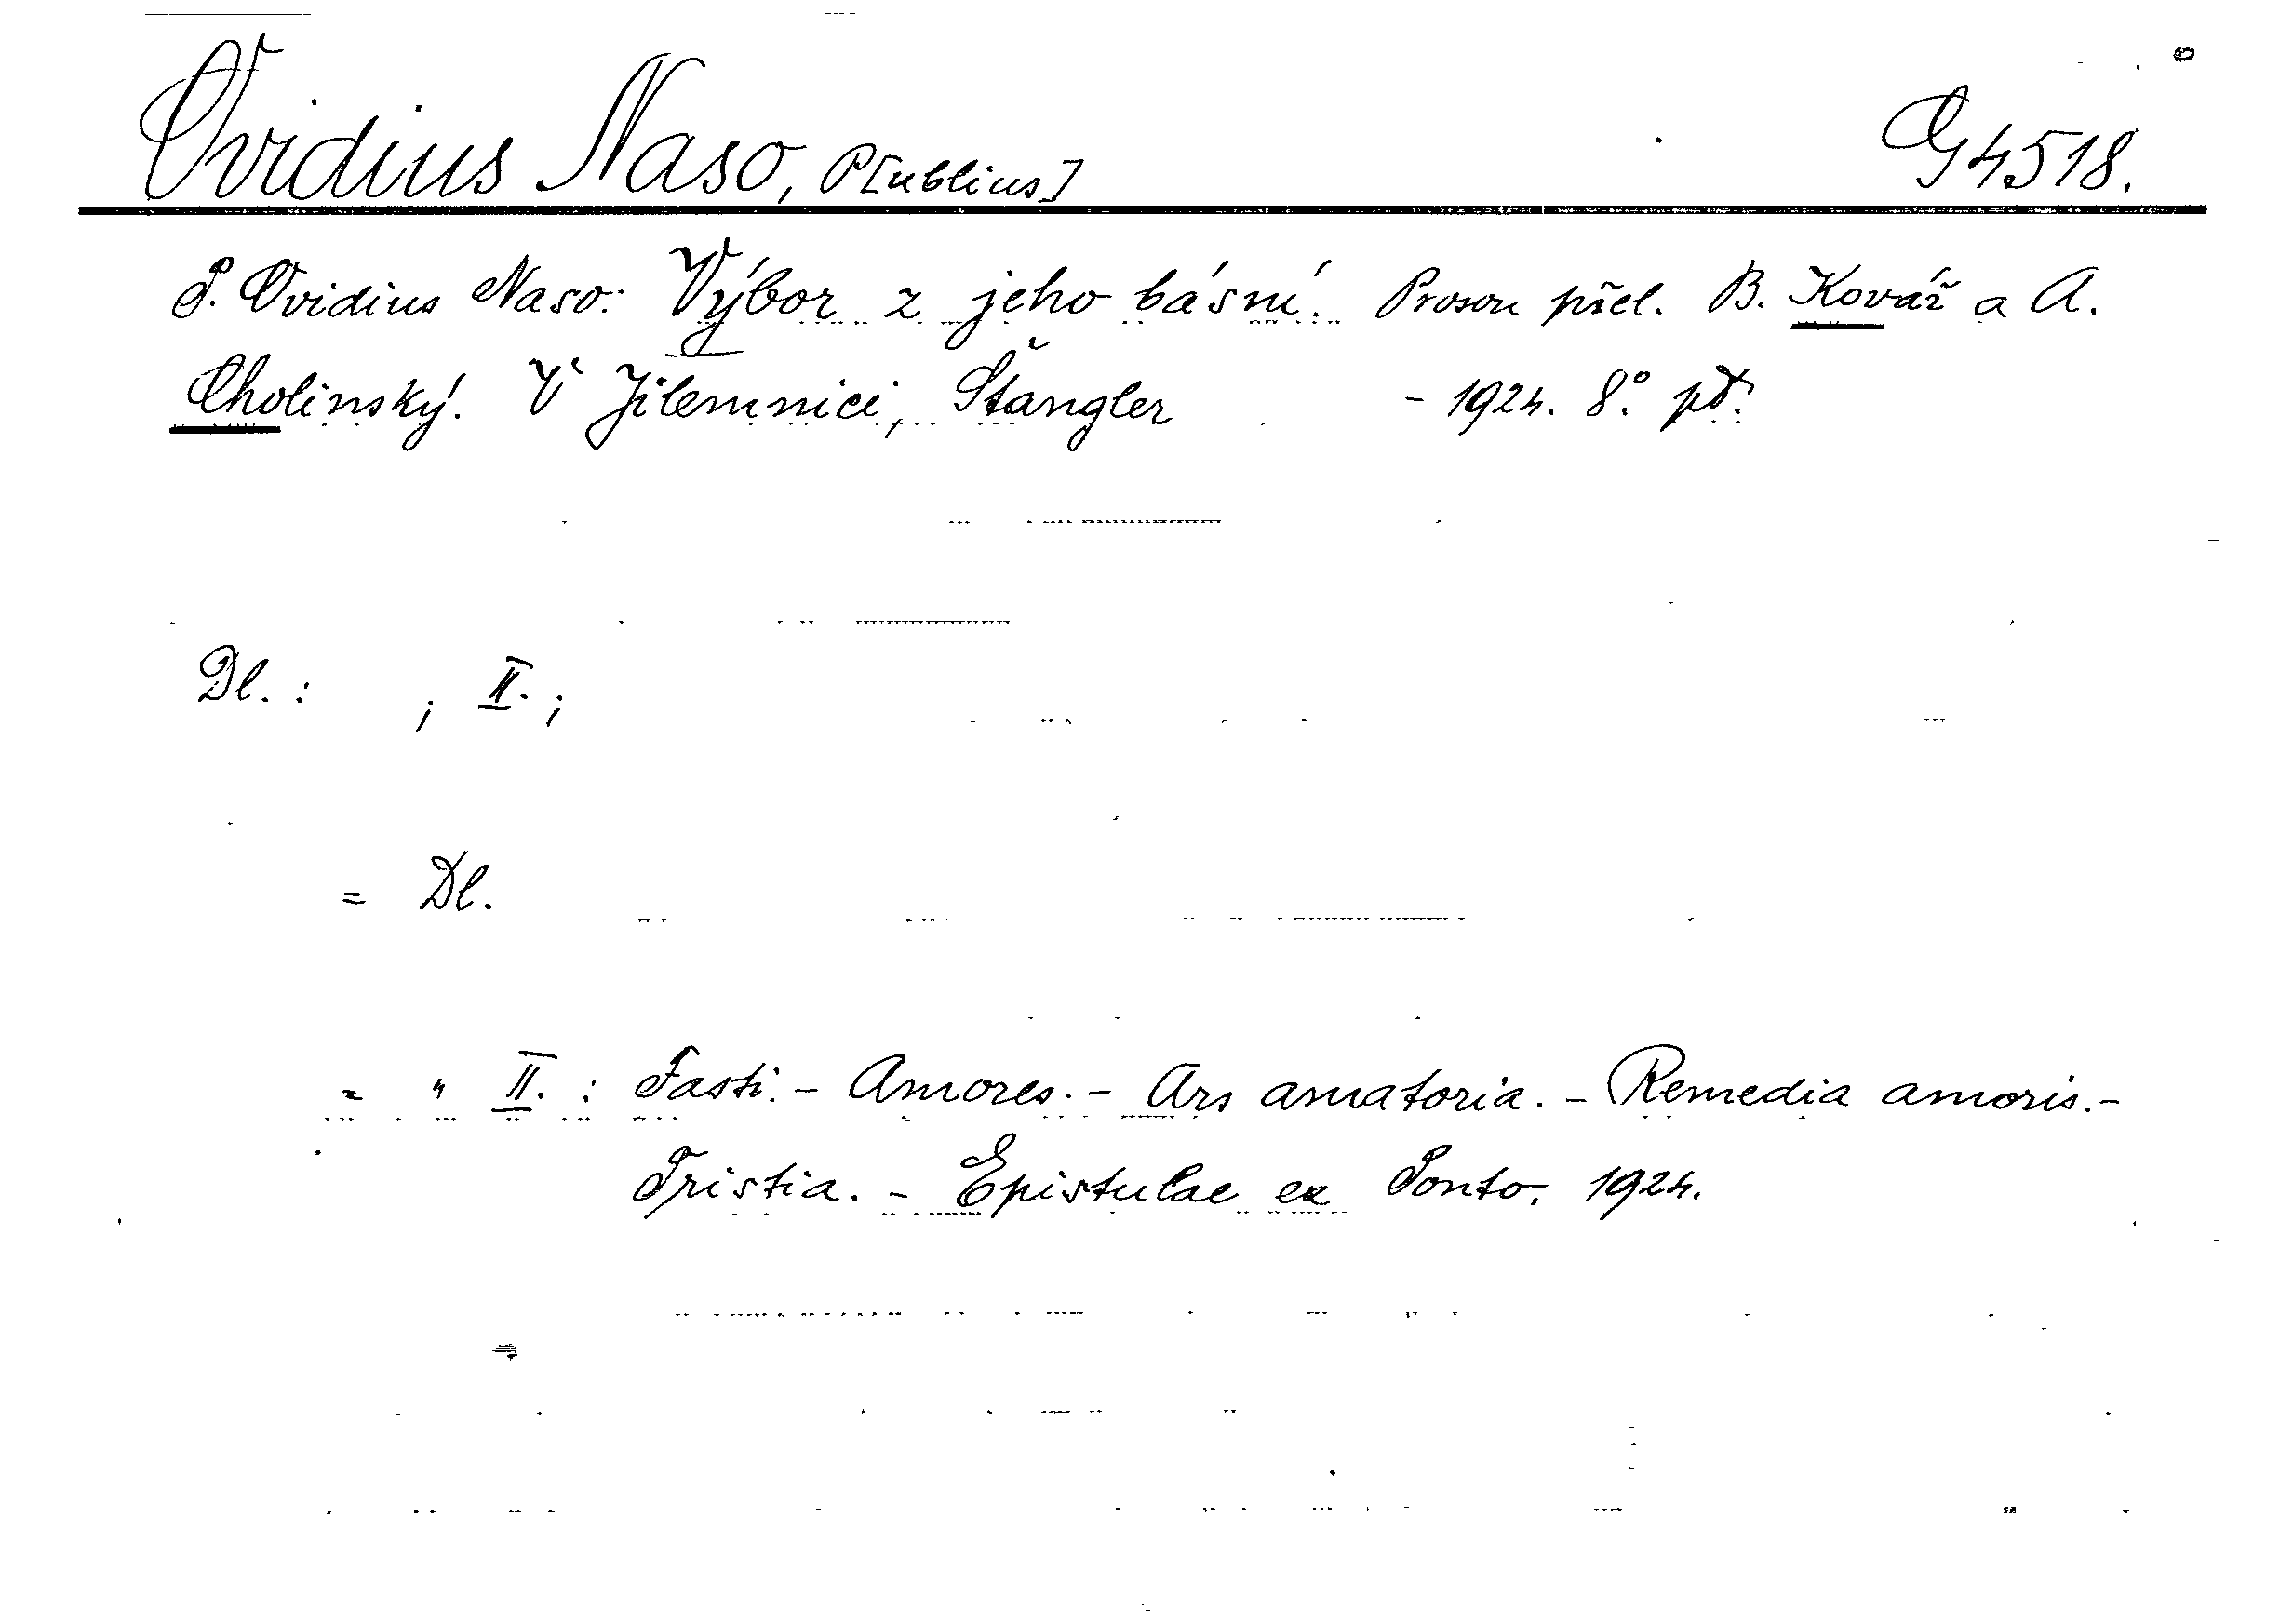 Ovidius Naso, P[ublius] G 4518.
P. Ovidius Naso: Výbor z jeho básní. Prosou přel. B. Kovář a A.
Cholinský. V Jilemnici, Štangler - 1924. 8° př.
Dl. : ; II. ;
= Dl.
= " II. : Fasti. - Amores. - Ars amatoria. - Remedia amoris. -
Tristia. - Epistulae ex Ponto. 1924.